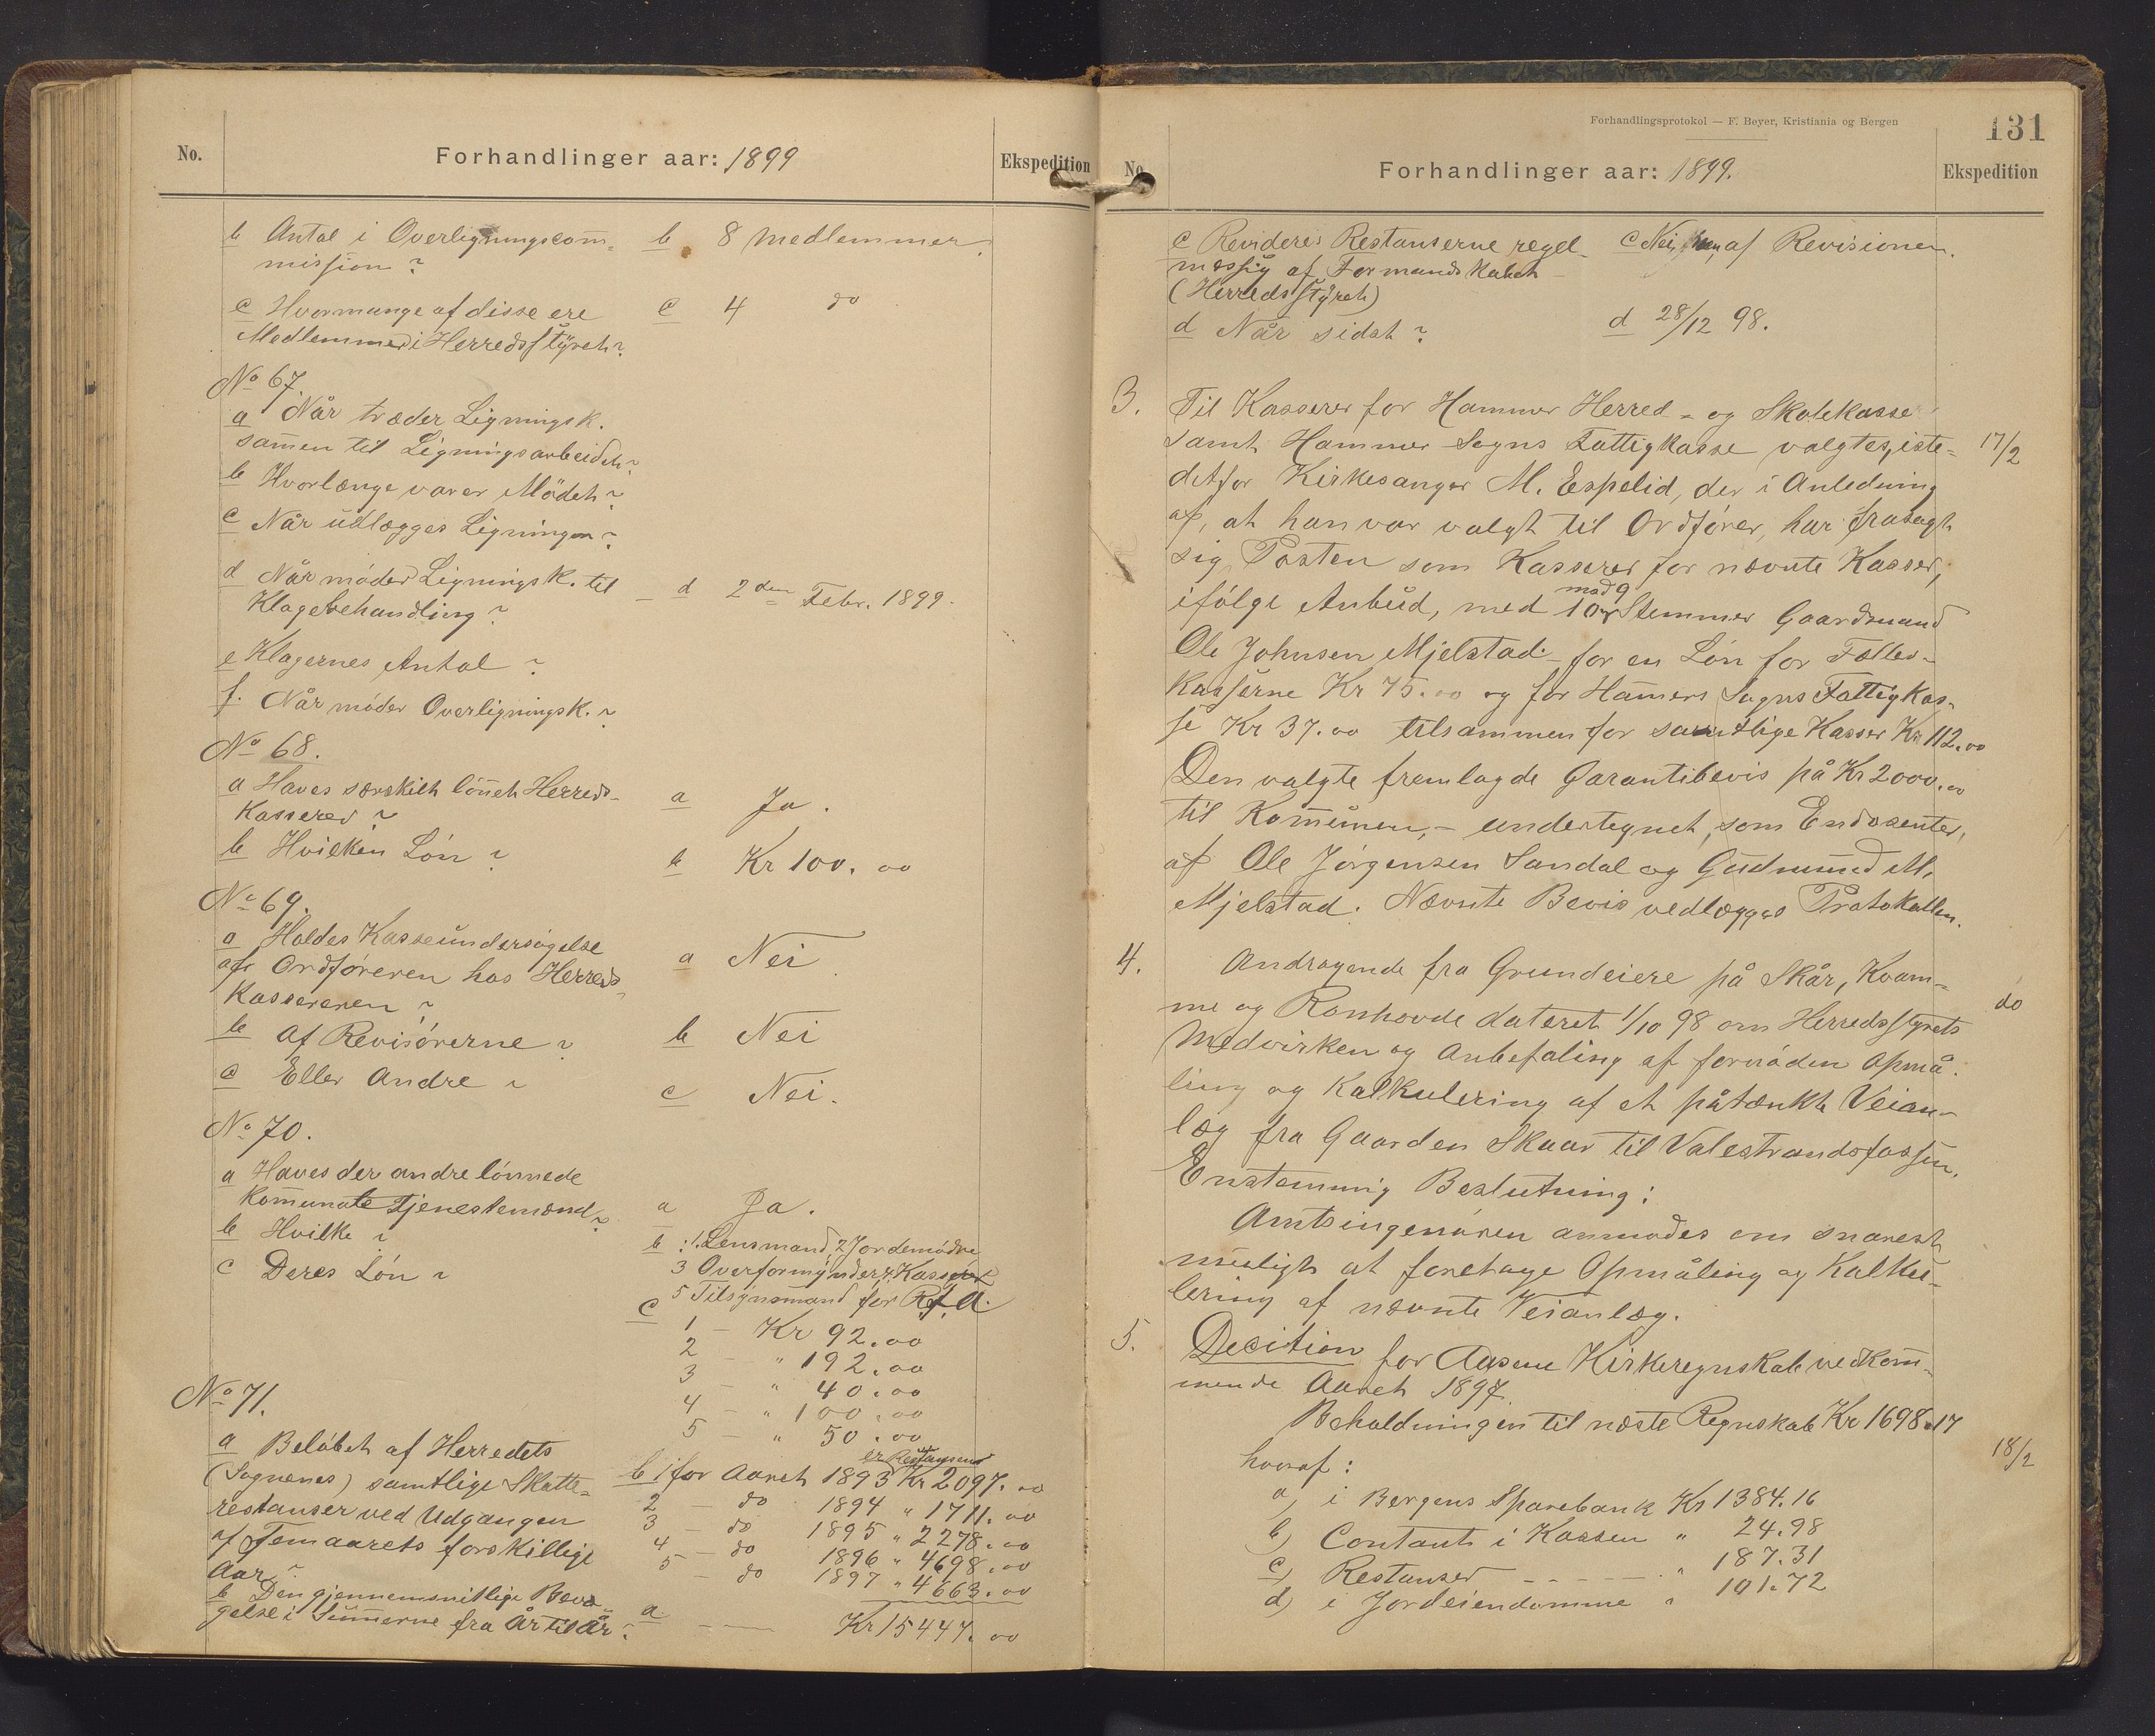 No.
Forhandlinger aar: 1899
Ekspedition
b Antal i Overligningscom̅-
mission?
b 8 medlemmer.
c Hvormange af disse ere
Medlemmer i Herredsstyret?
c 4 do
No 67.
a Når træder Ligningsk.
sam̅en til Ligningsarbeidet?
b Hvorlænge varer Mödet?
c Når udlægges Ligningen?
d Når möder Ligningsk. til
Klagebehandling?
d 2den Febr. 1899.
e Klagernes Antal?
f. Når möder Overligningsk.?
No 68.
a Haves særskilt lön̅et Herreds-
Kasserer?
a Ja.
b Hvilken Lön?
b Kr 100.00
No 69.
a Holdes Kasseundersögelse
af Ordföreren hos Herreds-
Kassereren?
a Nei
b Af Revisörerne?
b Nei
c Eller Andre?
c Nei.
No 70.
a Haves der andre lönnede
Kom̅unale Tjenestemænd?
a Ja.
b Hvilke?
b : 1. Lensmand, 2 Jordemödre
3 Overformynder, 4. Kasserer
5 Tilsynsmand for
c Deres Lön?
c
1 – Kr 92.00
2 – " 192.00
3 – " 40.00
4 – " 100.00
5 – " 50.00
No 71.
a Belöbet af Herredets
(Sognenes) samtlige Skatte-
restanser ved Udgangen
af Femaarets forskillige
Aar?
er Restansen
b 1 for Aaret 1893 Kr 2097.00
2 – do 1894 " 1711.00
3 – do 1895 " 2278.00
4 – do 1896 " 4698.00
5 – do 1897 " 4663.00
b Den gjennemsnitlige Bevæ-
gelse i Sum̅erne fra År til År?
a – – Kr 15447.00
Forhandlingsprotokol — F. Beyer, Kristiania og Bergen
131
No.
Forhandlinger aar: 1899.
Ekspedition
c Revideres Restanserne regel-
mæssig af Formandskabet
(Herredsstyret)
c Nei, af Revisionen.
d Når sidst?
d 28/12 98.
3. Til Kasserer for Hammer Herred- og Skolekasse
samt Hammer Sogns Fattigkasse valgtes, iste- 17/2
detfor Kirkesanger M. Espelid, der i Anledning
af, at han var valgt til Ordförer, har frasagt
sig Posten som Kasserer for nævnte Kasser,
ifölge Anbud, med 10 mod 9 Stemmer Gaardmand
Ole Johnsen Mjelstad – for en Lön for Fælles-
kasserne Kr 75.00 og for Ham̅ers Sogns Fattigkas-
se Kr 37.00 tilsammen for samtlige Kasser Kr 112.00
Den valgte fremlagde Garantibevis på Kr 2000.00
til Kom̅unen, – undertegnet, som Endosenter,
af Ole Jörgensen Sandal og Gudmund M.
Mjelstad. Nævnte Bevis vedlægges Protokollen.
4. Andragende fra Grundeiere på Skår, Kvam-
me og Ronhovde dateret 1/10 98 om Herredsstyrets do
Medvirken og Anbefaling af fornöden Opmå-
ling og Kalkulering af et påtænkt Veian-
læg fra Gaarden Skaar til Valestrandsfossen.
Enstemmig Beslutning:
Amtsingenören anmodes om snarest
muligt at foretage Opmåling og Kalku-
lering af nævnte Veianlæg.
5. Decition for Aasene Kirkeregnskab vedkom̅-
mende Aaret 1897.
Beholdningen til næste Regnskab Kr 1698.17
hvoraf: 18/2
a) i Bergens Sparebank Kr 1384.16
b) Contant i Kassen " 24.98
c) Restanser – – – – " 187.31
d) i Jordeiendomme " 101.72